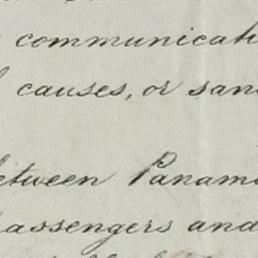 communicati
causes, or san
between Panama
passengers and